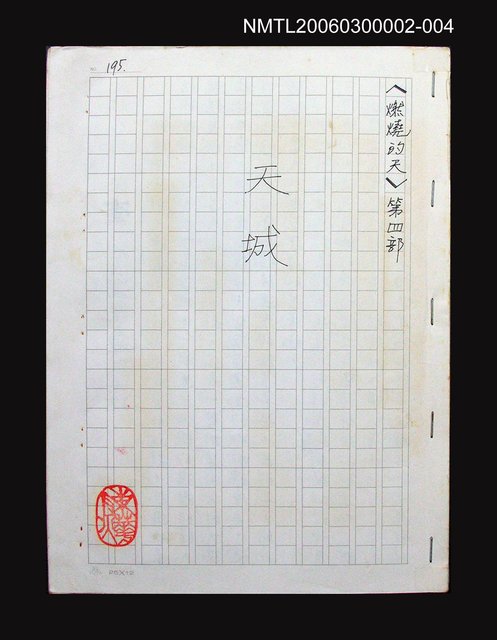 NMTL20060300002-004
195.
〈燃燒的天〉第四部
天城
25×12